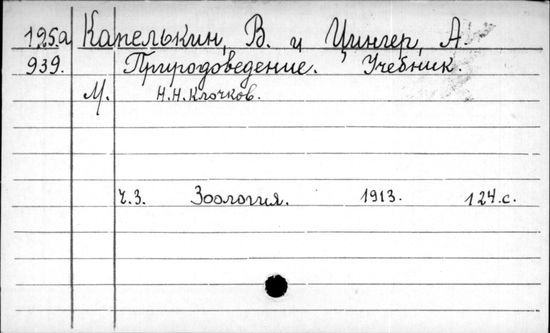 125а Капелькин, В. и Цингер, А.
939. Природоведение. Учебник.
М. Н.Н.Клочков.
Ч.3. Зоология. 1913. 124.с.